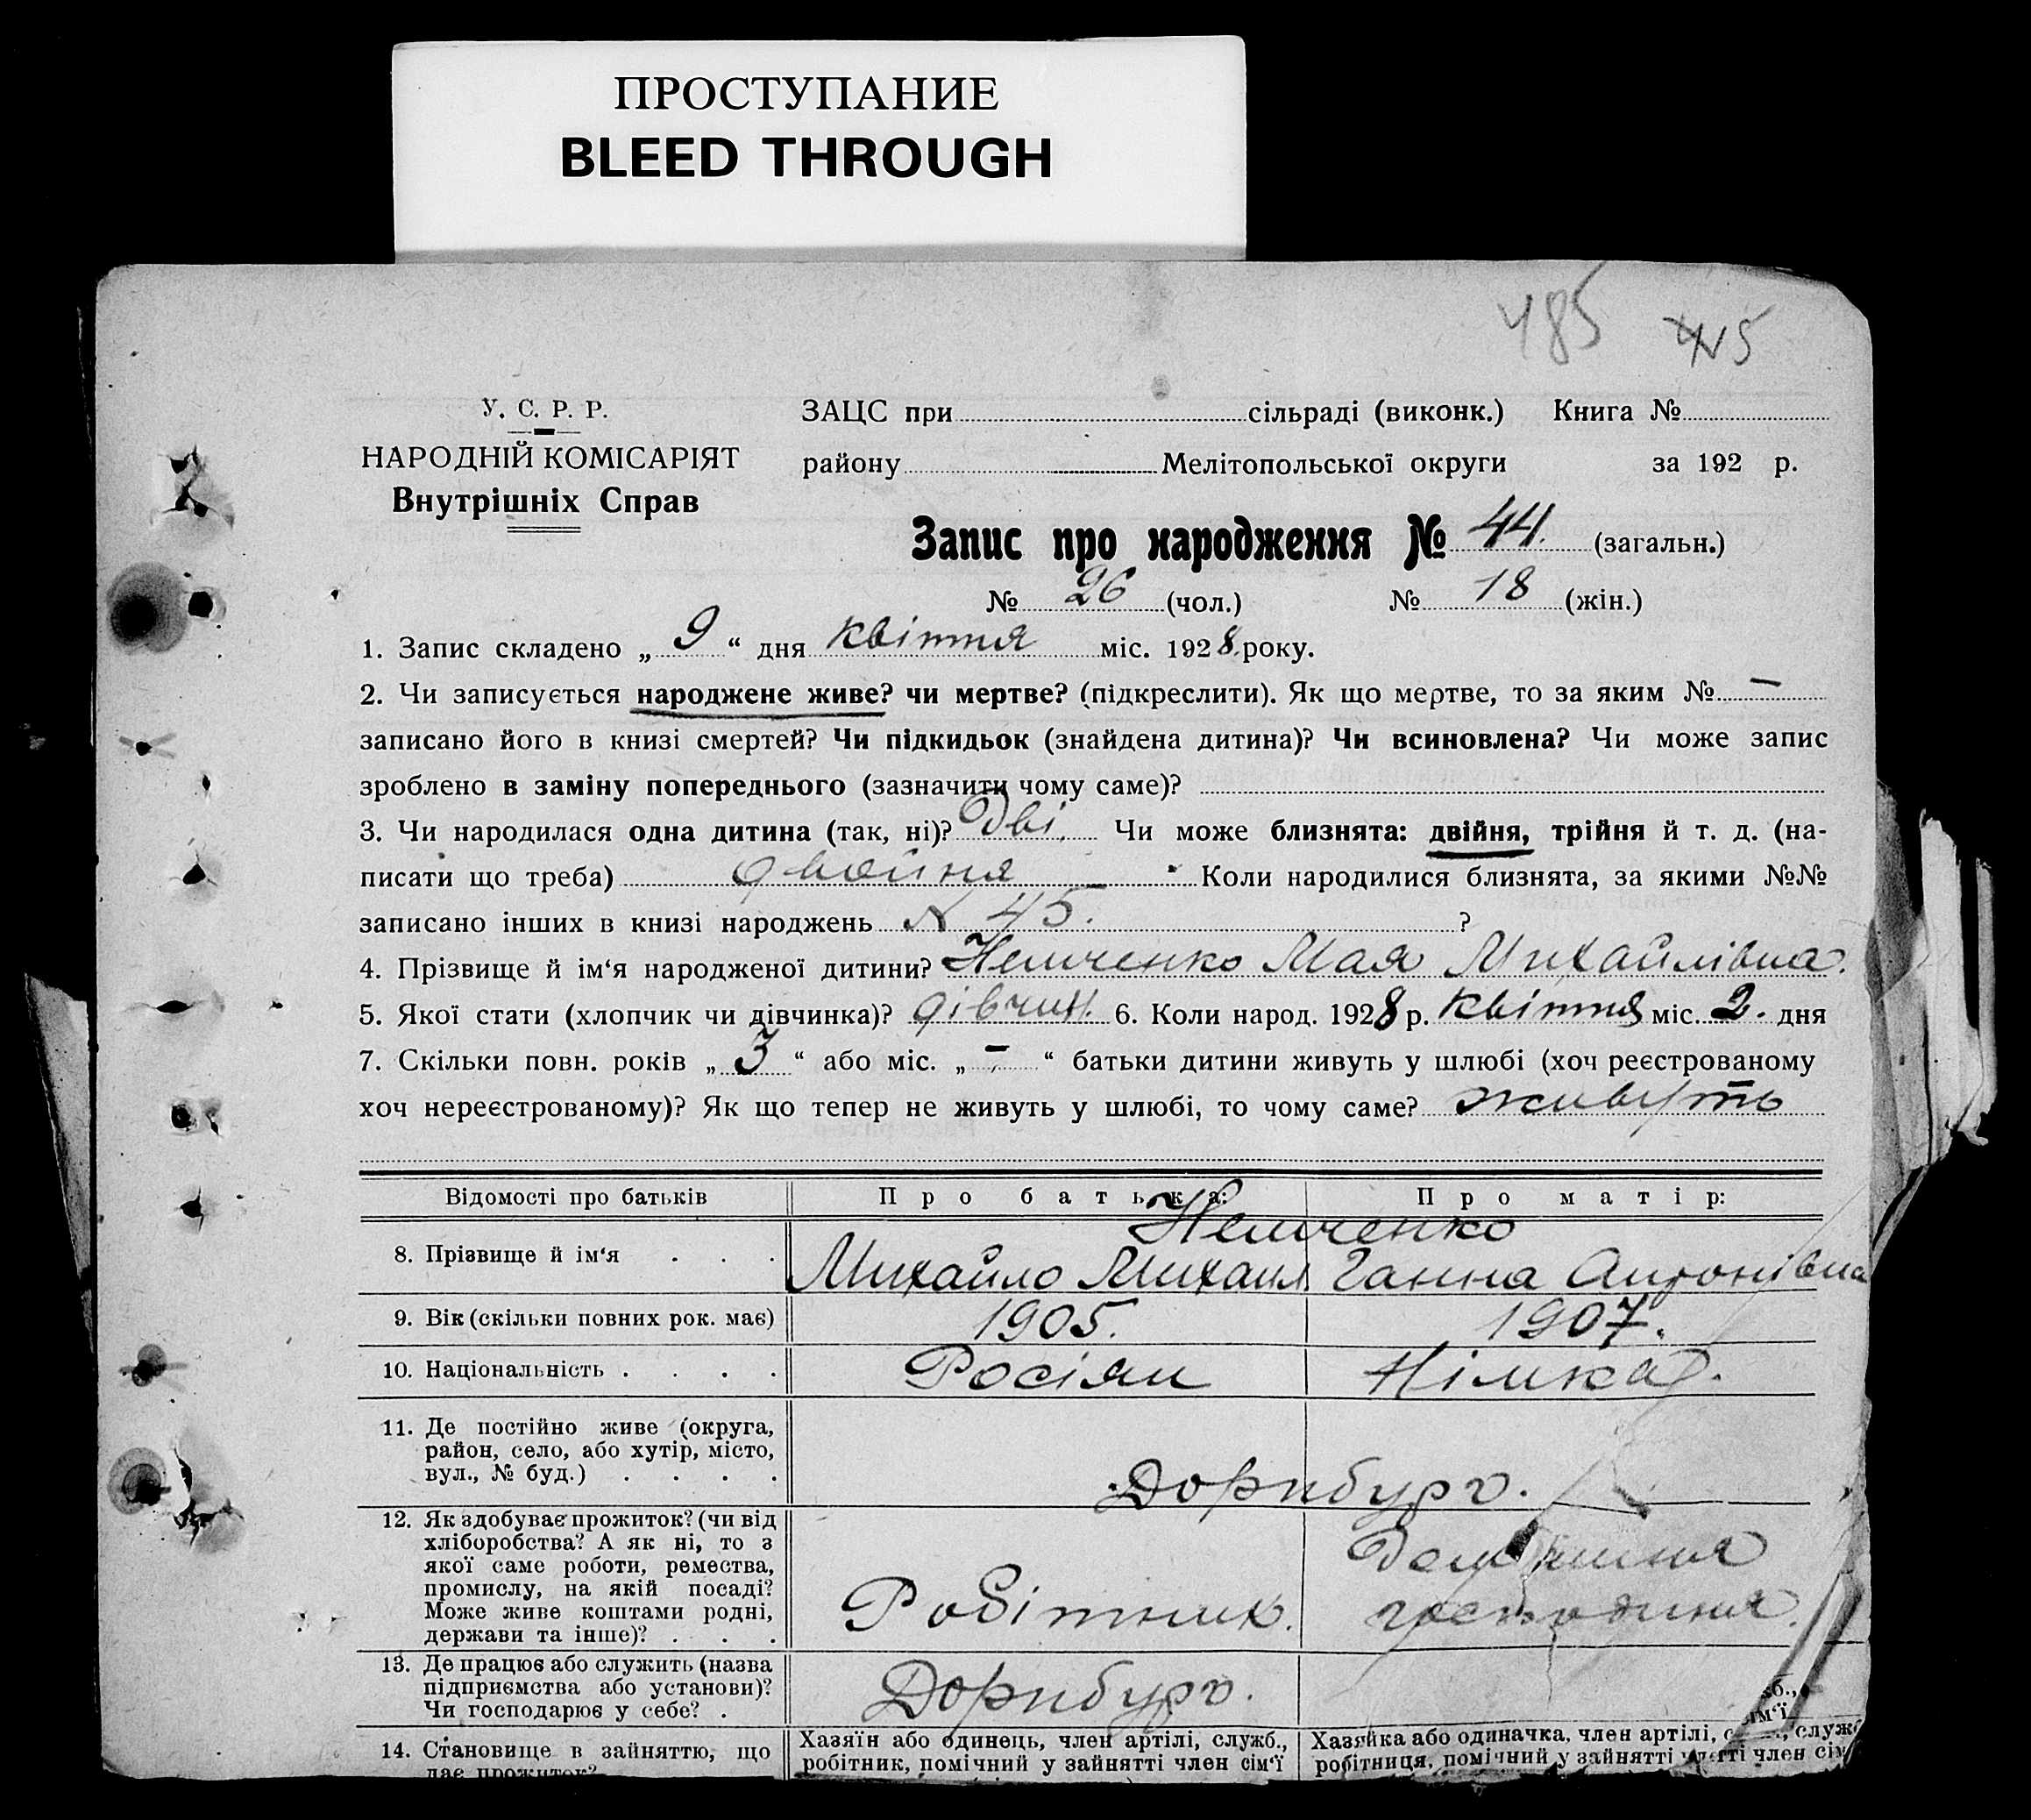 ПРОСТУПАНИЕ
BLEED THROUGH
485 415
У. С. Р. Р.
НАРОДНІЙ КОМІСАРІЯТ
Внутрішніх Справ
ЗАЦС при сільраді (виконк.) Книга №
району Мелітопольської округи за 192 р.
Запис про народження № 44. (загальн.)
№ 26 (чол.) № 18 (жін.)
1. Запис складено „ 9 “ дня квітня міс. 1928. року.
2. Чи записується народжене живе? чи мертве? (підкреслити). Як що мертве, то за яким № —
записано його в книзі смертей? Чи підкидьок (знайдена дитина)? Чи всиновлена? Чи може запис
зроблено в заміну попереднього (зазначити чому саме)?
3. Чи народилася одна дитина (так, ні)? Дві. Чи може близнята: двійня, трійня й т. д. (на-
писати що треба) двойня Коли народилися близнята, за якими №№
записано інших в книзі народжень N 45. ?
4. Прізвище й ім‘я народженої дитини? Немченко Мая Михайлівна.
5. Якої стати (хлопчик чи дівчинка)? дівчин. 6. Коли народ. 1928 р. квітня міс. 2. дня
7. Скільки повн. років „ 3 “ або міс. „ — “ батьки дитини живуть у шлюбі (хоч реєстрованому
хоч нереєстрованому)? Як що тепер не живуть у шлюбі, то чому саме? живуть
Відомості про батьків Про батька: Про матір:
Немченко
8. Прізвище й ім‘я . . . Михайло Михаил Ганна Антонівна
9. Вік (скільки повних рок. має) 1905. 1907.
10. Національність . . . . Росіян Німка.
11. Де постійно живе (округа,
район, село, або хутір, місто,
вул., № буд.) . . . . Дорнбург.
12. Як здобуває прожиток? (чи від
хліборобства? А як ні, то з
якої саме роботи, ремества,
промислу, на якій посаді?
Може живе коштами родні,
держави та інше)? . . . Робітник. Домашня господиня.
13. Де працює або служить (назва
підприємства або установи)?
Чи господарює у себе? . Дорнбург.
14. Становище в зайняттю, що
дає прожиток?
Хазяїн або одинець, член артілі, служб.,
робітник, помічний у зайнятті член сім‘ї
Хазяйка або одиначка, член артілі, служб
робітниця, помічний у зайнятті член сім